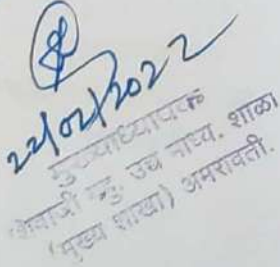 22/02/2022
मुख्याध्यापक
शिवाजी बहु. उच्च माध्य. शाळा
(मुख्य शाखा) अमरावती.